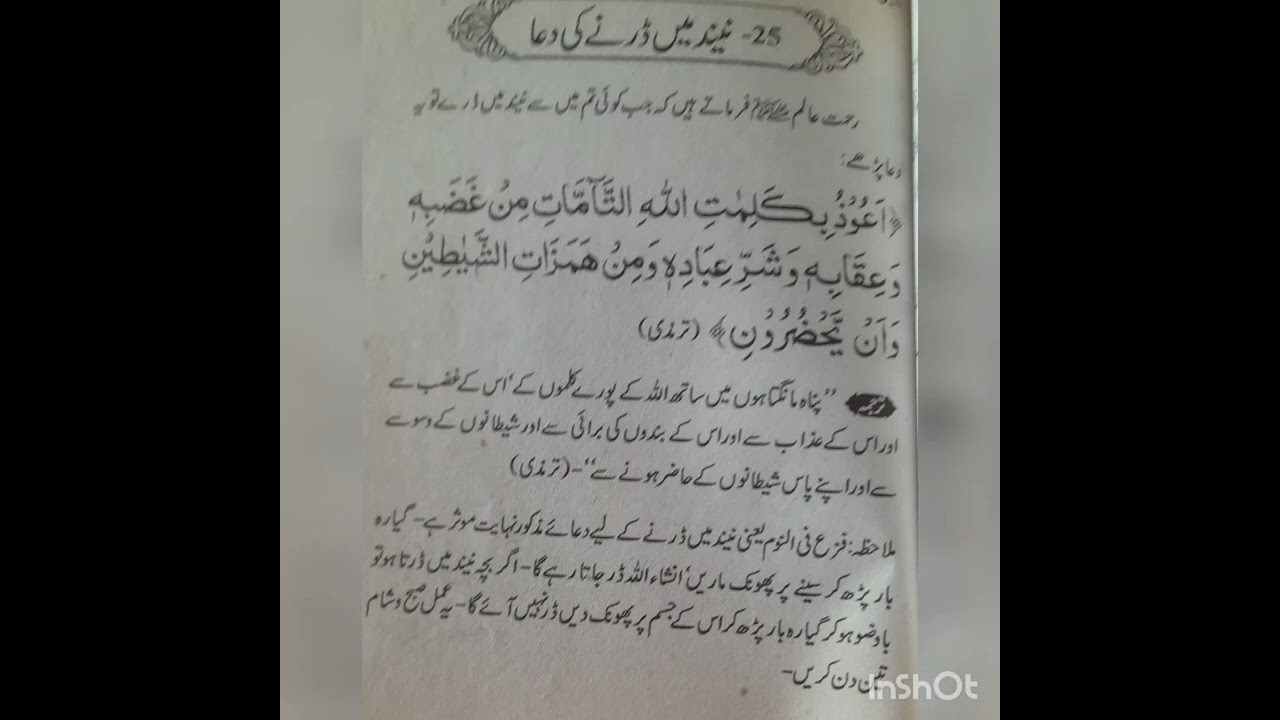 25- نیند میں ڈرنے کی دعا
رحمت عالم ﷺ فرماتے ہیں کہ جب کوئی تم میں سے نیند میں ڈرے تو یہ
دعا پڑھے:
﴿اَعُوْذُ بِکَلِمٰتِ اللّٰهِ التَّآمَّاتِ مِنْ غَضَبِهٖ
وَعِقَابِهٖ وَشَرِّ عِبَادِهٖ وَمِنْ هَمَزَاتِ الشَّیٰطِیْنِ
وَاَنْ یَّحْضُرُوْنِ﴾ (ترمذی)
ترجمہ "پناہ مانگتا ہوں میں ساتھ اللہ کے پورے کلموں کے' اس کے غضب سے
اور اس کے عذاب سے اور اس کے بندوں کی برائی سے اور شیطانوں کے وسوسے
سے اور اپنے پاس شیطانوں کے حاضر ہونے سے"-(ترمذی)
ملاحظہ: فزع فی النوم یعنی نیند میں ڈرنے کے لیے دعائے مذکور نہایت موثر ہے- گیارہ
بار پڑھ کر سینے پر پھونک ماریں' انشاء اللہ ڈر جاتا رہے گا- اگر بچہ نیند میں ڈرتا ہو تو
با وضو ہو کر گیارہ بار پڑھ کر اس کے جسم پر پھونک دیں ڈر نہیں آئے گا- یہ عمل صبح و شام
تین دن کریں-
InShOt